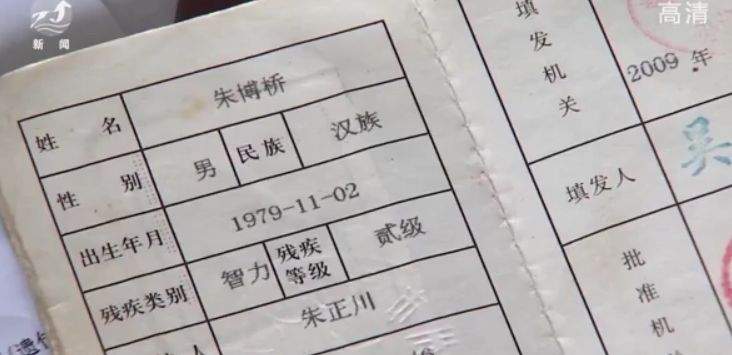 新闻
高清
姓 名 朱博桥
性 别 男 民族 汉族
出生年月 1979-11-02
残疾类别 智力 残疾等级 贰级
人 朱正川
填发机关 2009 年
填发人 吴
批准机